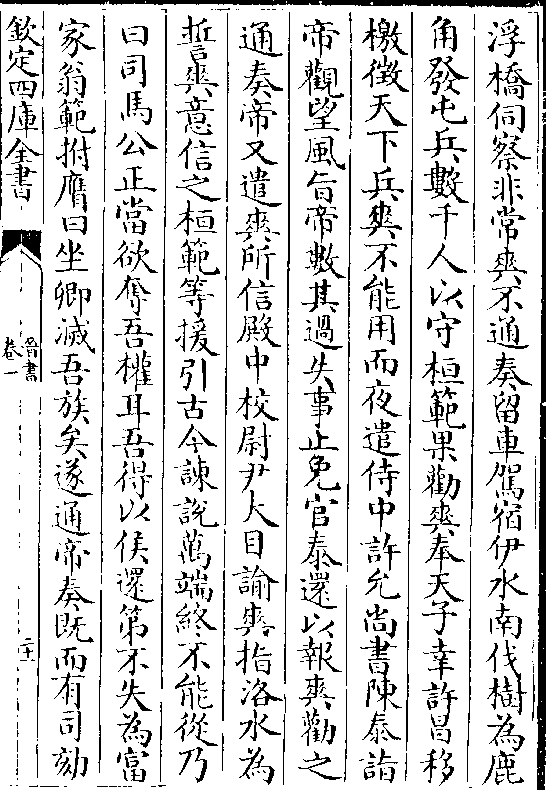 浮橋伺察非常爽不通奏留車駕宿伊水南伐樹為鹿
角發屯兵數千人以守桓範果勸爽奉天子幸許昌移
檄徵天下兵爽不能用而夜遣侍中許允尚書陳泰詣
帝觀望風旨帝數其過失事止免官泰還以報爽勸之
通奏帝又遣爽所信殿中校尉尹大目諭爽指洛水為
誓爽意信之桓範等援引古今諫說萬端終不能從乃
曰司馬公正當欲奪吾權耳吾得以侯還第不失為富
家翁範拊膺曰坐卿滅吾族矣遂通帝奏既而有司劾
欽定四庫全書
晉書
卷一
二十